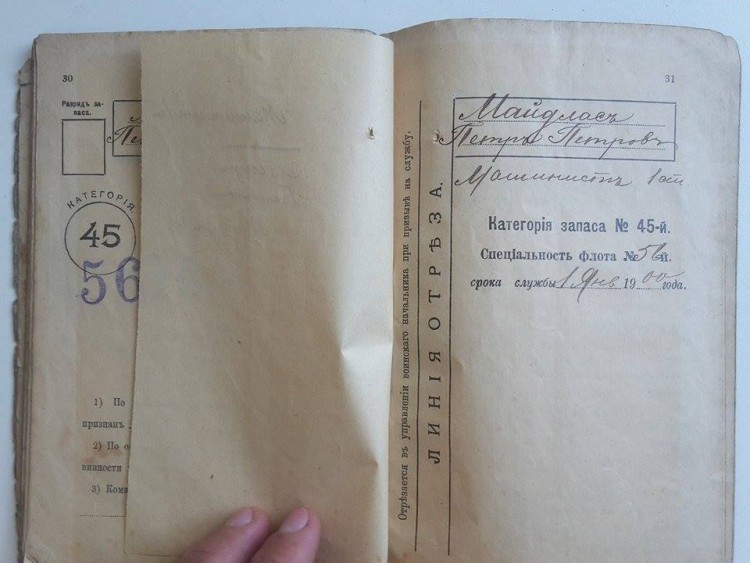 30
Разрядъ за-
паса.
КАТЕГОРІЯ
45
56
1) По
признан
2) По о
винности
3) Кома
Отрѣзается въ управленіи воинскаго начальника при призывѣ на службу.
ЛИНІЯ ОТРѢЗА.
31
Майдласъ
Петръ Петровъ
Машинистъ 1 ст
Категорія запаса № 45-й.
Спеціальность флота № 56-й.
срока службы 1 Янв 1900 года.